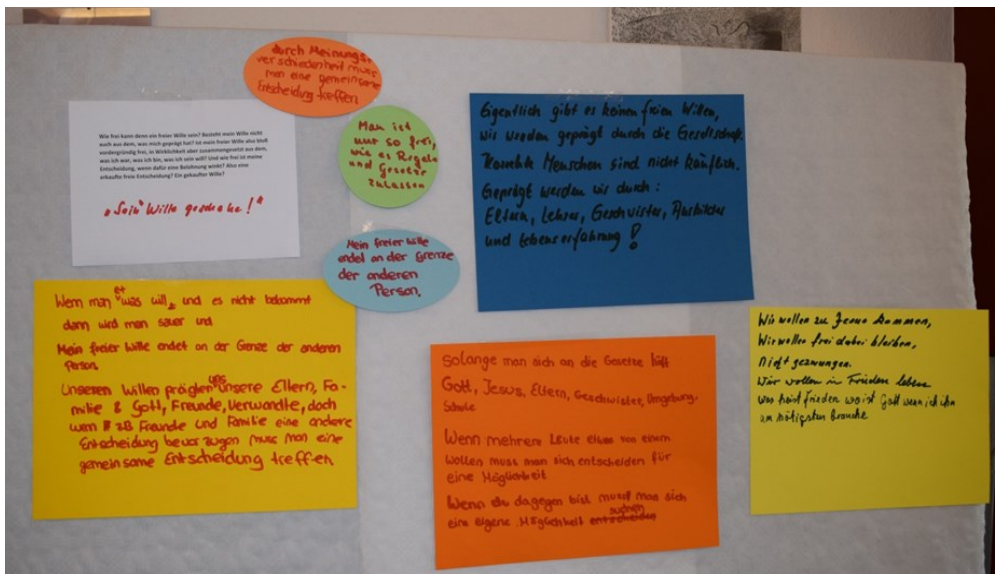 durch Meinungs-
verschiedenheit muss
man eine gemeinsame
Entscheidung treffen
Wie frei kann denn ein freier Wille sein? Besteht mein Wille nicht
auch aus dem, was mich geprägt hat? Ist mein freier Wille also bloß
vordergründig frei, in Wirklichkeit aber zusammengesetzt aus dem,
was ich war, was ich bin, was ich sein will? Und wie frei ist meine
Entscheidung, wenn dafür eine Belohnung winkt? Also eine
erkaufte freie Entscheidung? Ein gekaufter Wille?
"Sein" Wille geschehe!"
Man ist
nur so frei,
wie es Regeln
und Gesetze
zulassen
Eigentlich gibt es keinen freien Willen,
wir werden geprägt durch die Gesellschaft.
Korrekte Menschen sind nicht käuflich.
Geprägt werden wir durch:
Eltern, Lehrer, Geschwister, Ausbilder
und Lebenserfahrung!
Mein freier Wille
endet an der Grenze
der anderen
Person.
Wenn man etwas will, und es nicht bekommt
dann wird man sauer und
Mein freier Wille endet an der Grenze der anderen
Person.
Unseren Willen prägten uns unsere Eltern, Fa-
milie & Gott, Freunde, Verwandte, doch
wenn zB Freunde und Familie eine andere
Entscheidung bevorzugen muss man eine
gemeinsame Entscheidung treffen
solange man sich an die Gesetze hält
Gott, Jesus, Eltern, Geschwister, Umgebung,
Schule
Wenn mehrere Leute etwas von einem
wollen muss man sich entscheiden für
eine Möglichkeit
Wenn du dagegen bist musst man sich
eine eigene Möglichkeit entscheiden suchen
Wir wollen zu Jesus kommen,
Wir wollen frei dabei bleiben,
Nicht gezwungen.
Wir wollen in Frieden leben
was heist frieden wo ist Gott wenn ich ihn
am nötigsten brauche